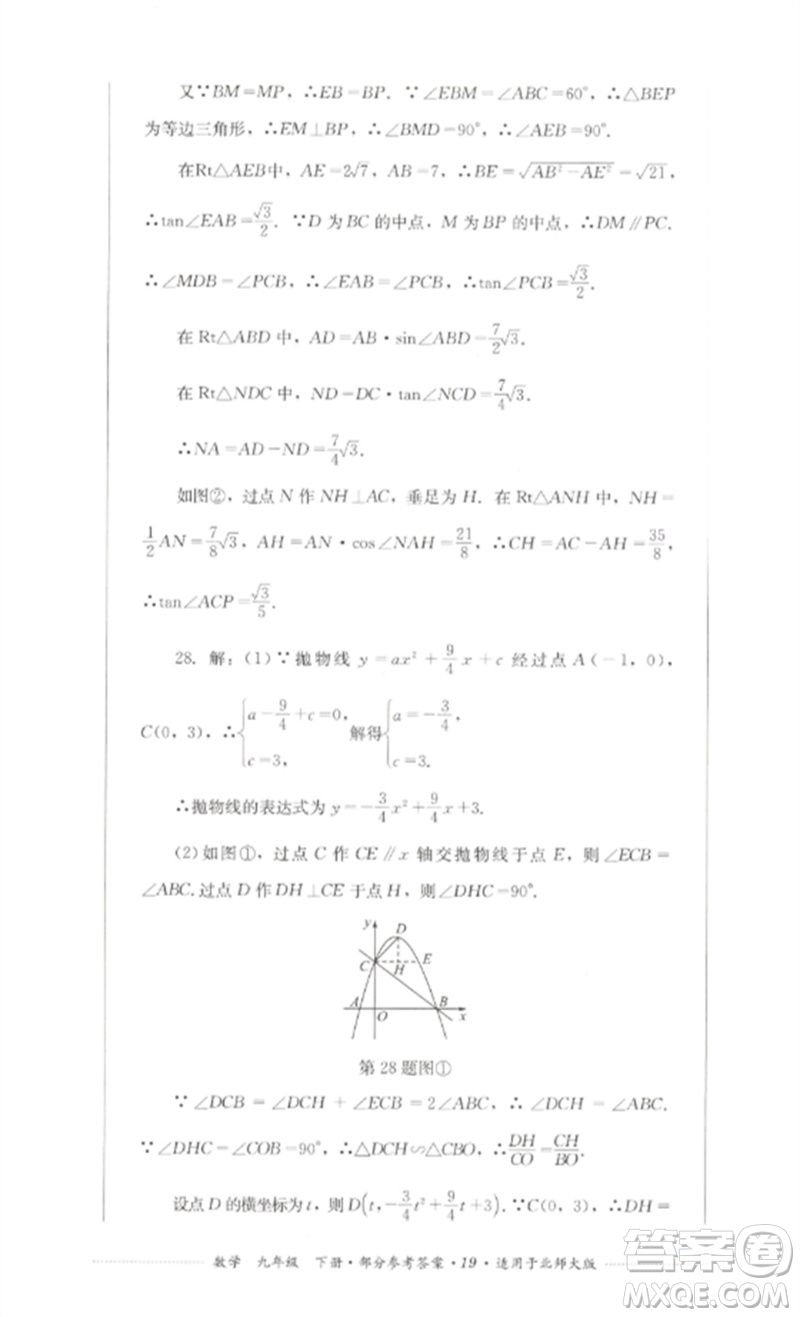 又∵BM=MP,∴EB=BP. ∵∠EBM=∠ABC=60°,∴△BEP
为等边三角形,∴EM⊥BP,∴∠BMD=90°,∴∠AEB=90°.
在Rt△AEB中,AE=2√7,AB=7,∴BE=√(AB²-AE²)=√21,
∴tan∠EAB=√3/2. ∵D 为 BC 的中点,M 为 BP 的中点,∴DM∥PC.
∴∠MDB=∠PCB,∴∠EAB=∠PCB,∴tan∠PCB=√3/2.
在 Rt△ABD 中,AD=AB·sin∠ABD=7/2√3.
在 Rt△NDC 中,ND=DC·tan∠NCD=7/4√3.
∴NA=AD-ND=7/4√3.
如图②,过点 N 作 NH⊥AC,垂足为 H. 在 Rt△ANH 中,NH=
1/2AN=7/8√3,AH=AN·cos∠NAH=21/8,∴CH=AC-AH=35/8,
∴tan∠ACP=√3/5.
28. 解:(1)∵抛物线 y=ax²+9/4x+c 经过点 A(-1,0),
C(0,3),∴{a-9/4+c=0, c=3, 解得{a=-3/4, c=3.
∴抛物线的表达式为 y=-3/4x²+9/4x+3.
(2)如图①,过点 C 作 CE∥x 轴交抛物线于点 E,则∠ECB=
∠ABC.过点 D 作 DH⊥CE 于点 H,则∠DHC=90°.
y
D
C
H
E
A
O
B
x
第28题图①
∵∠DCB=∠DCH+∠ECB=2∠ABC,∴∠DCH=∠ABC.
∵∠DHC=∠COB=90°,∴△DCH∽△CBO,∴DH/CO=CH/BO.
设点 D 的横坐标为 t,则 D(t,-3/4t²+9/4t+3).∵C(0,3),∴DH=
数学 九年级 下册·部分参考答案·19·适用于北师大版
答案圈
MXQE.COM